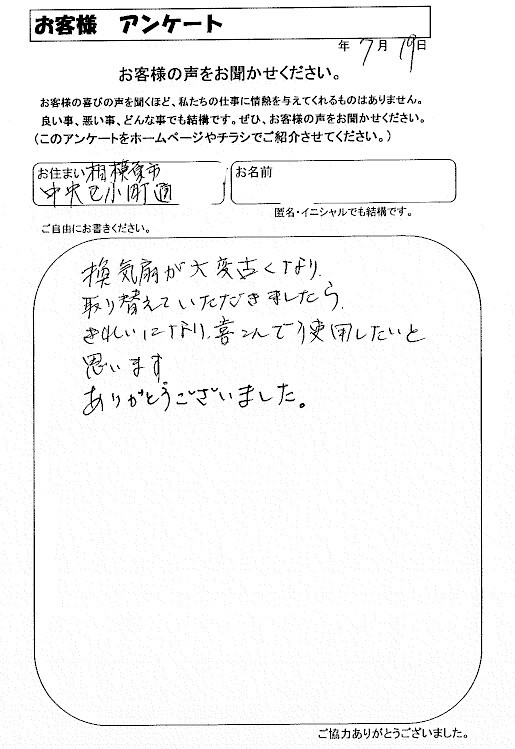 お客様 アンケート
年 7月 19日
お客様の声をお聞かせください。
お客様の喜びの声を聞くほど、私たちの仕事に情熱を与えてくれるものはありません。
良い事、悪い事、どんな事でも結構です。ぜひ、お客様の声をお聞かせください。
(このアンケートをホームページやチラシでご紹介させてください。)
お住まい 相模原市
中央区小町通
お名前
匿名・イニシャルでも結構です。
ご自由にお書きください。
換気扇が大変古くなり、
取り替えていただきましたら、
きれいになり、喜こんで使用したいと
思います
ありがとうございました。
ご協力ありがとうございました。